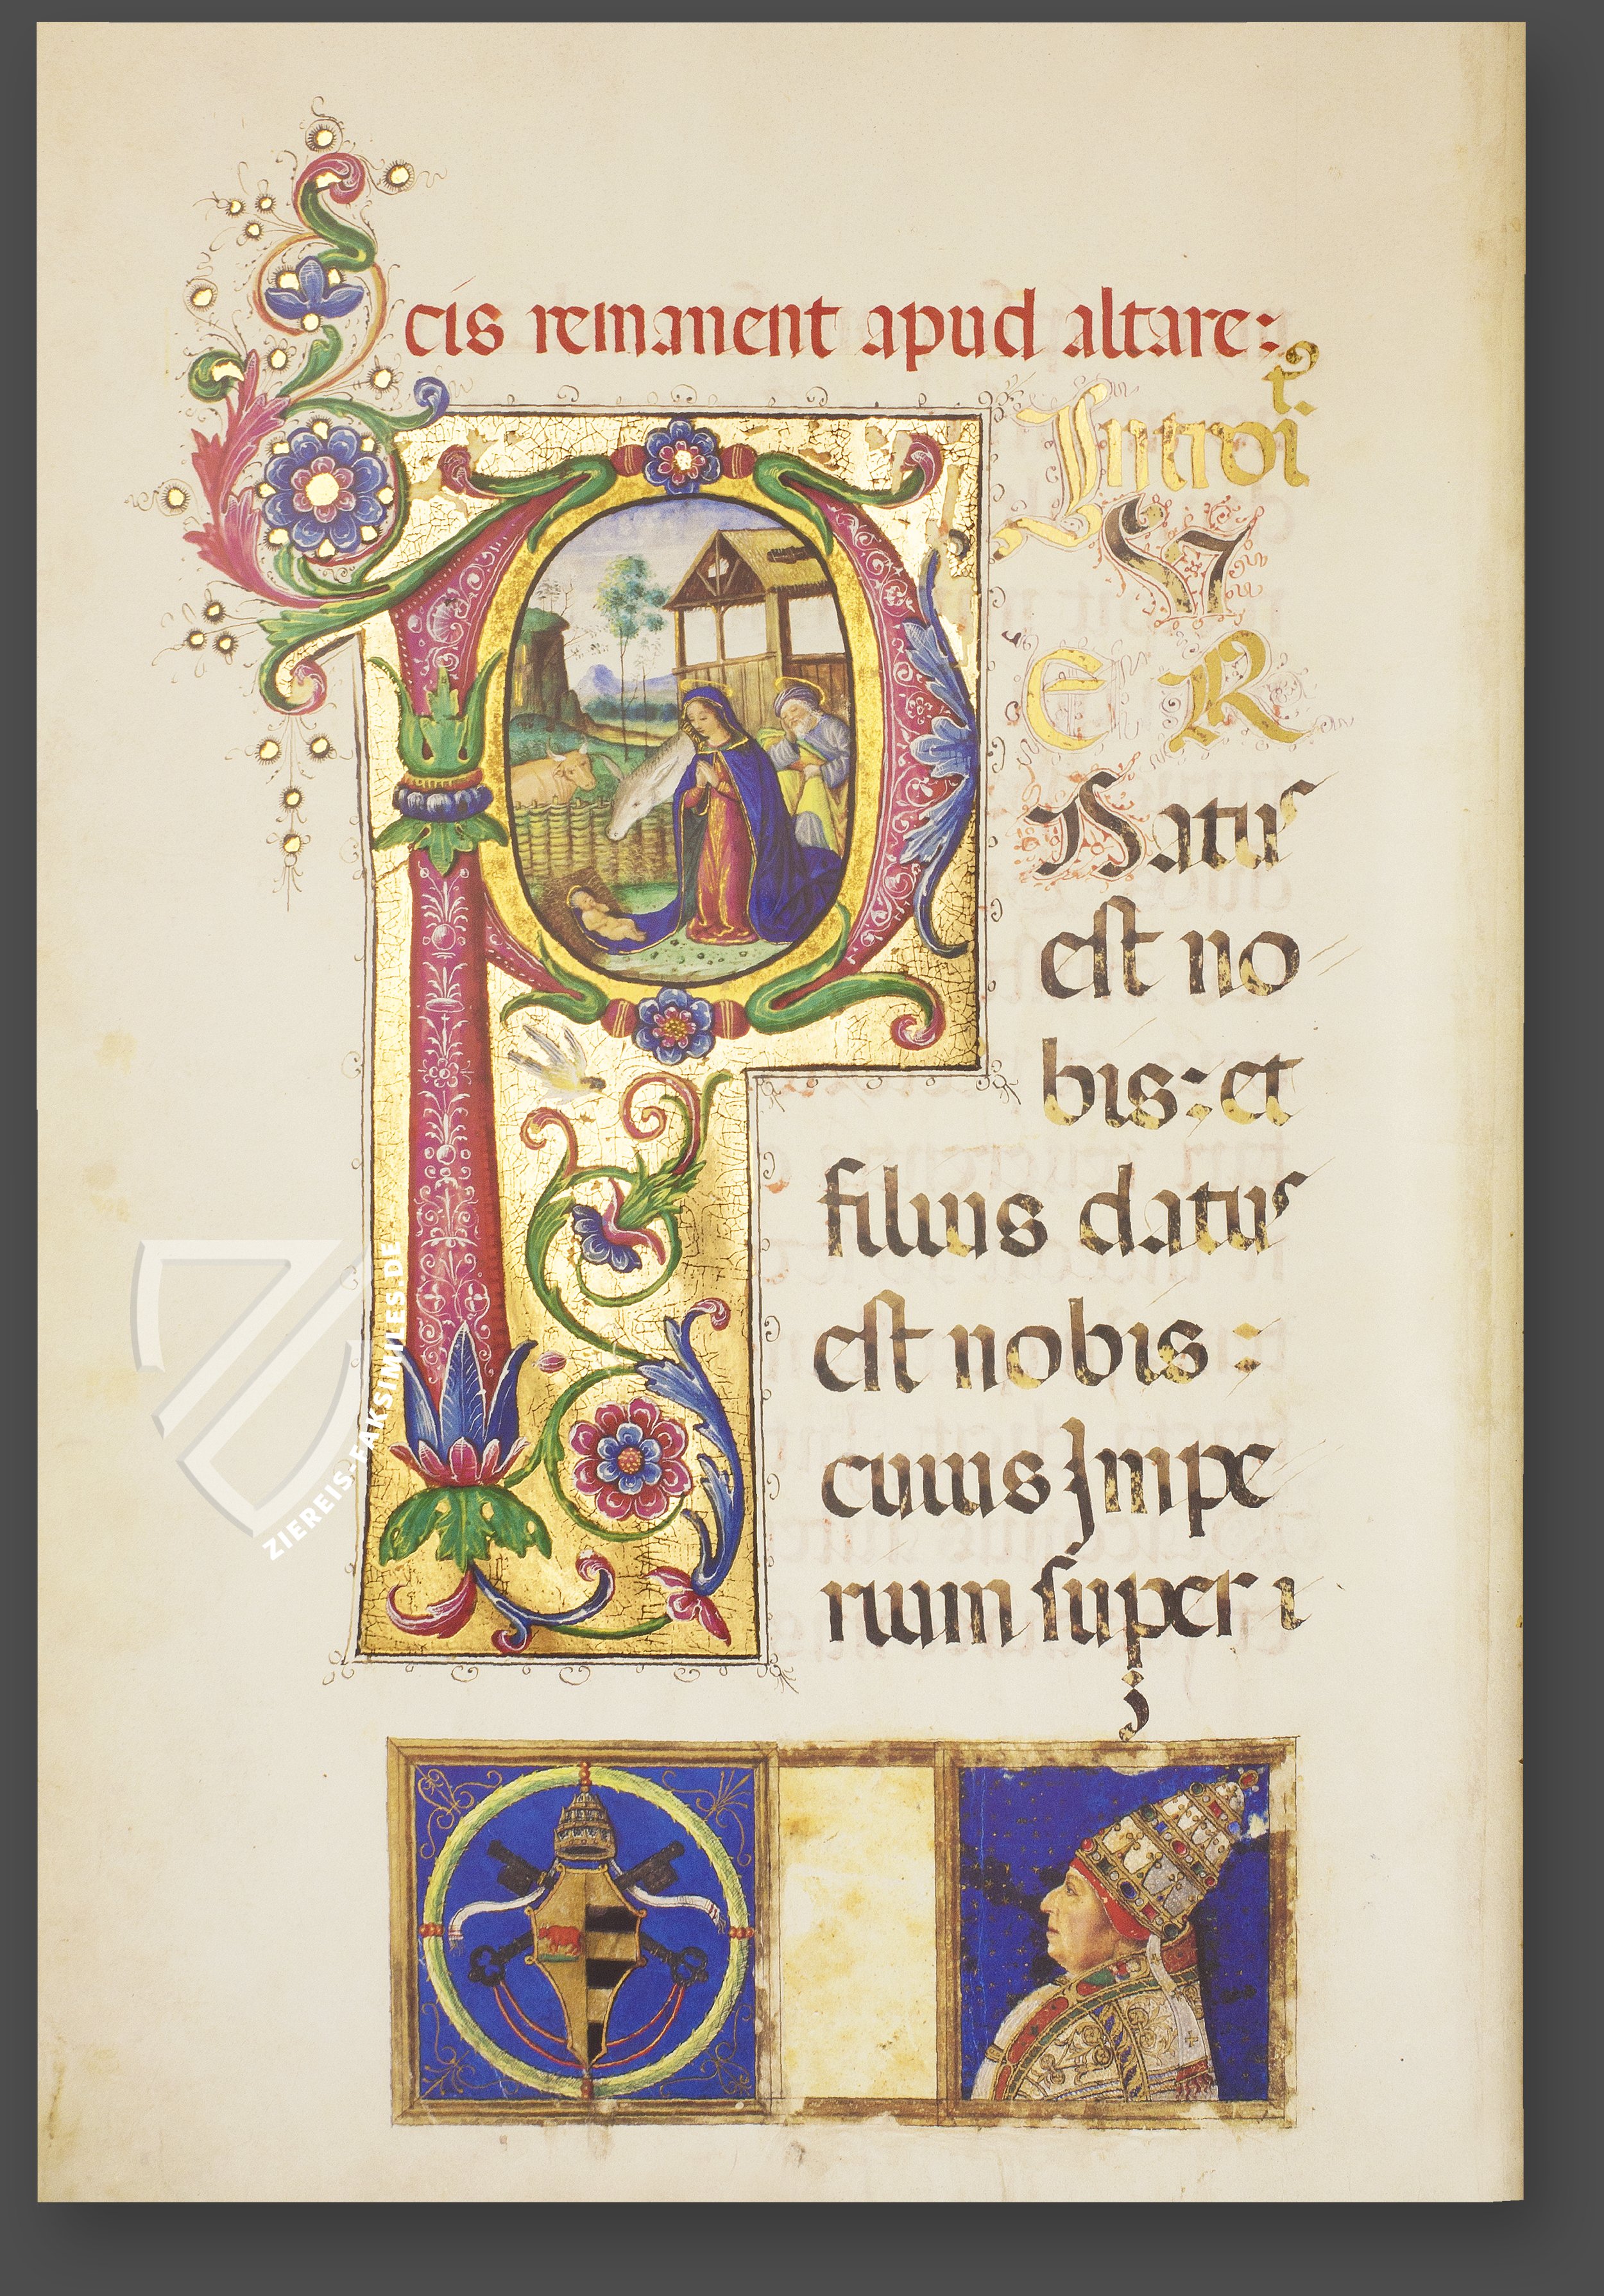 cis remanent apud altare:
Introit⁹.
P V
E R
Natus
est no
bis: et
filius datus
est nobis:
cuius Impe
rium super i
ZIEREIS-FAKSIMILES.DE